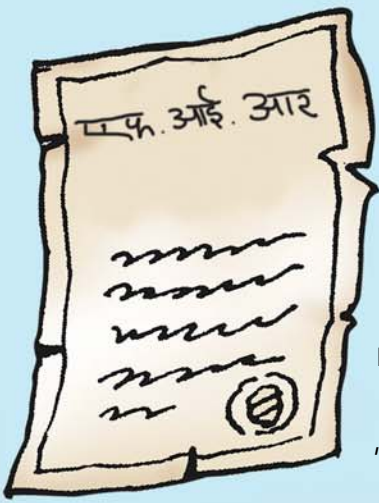 एफ. आई. आर